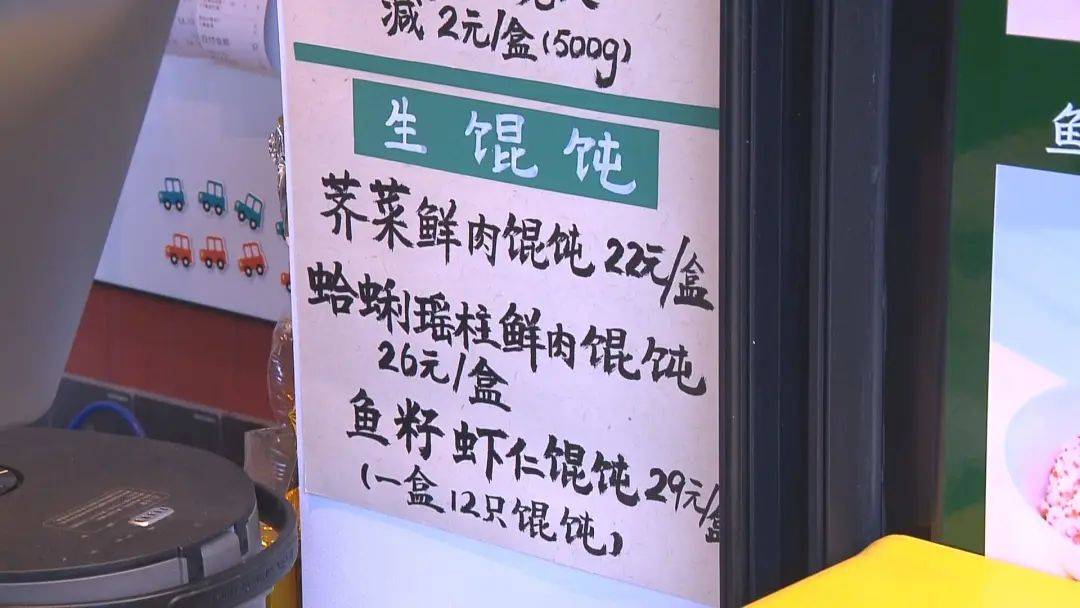 减2元/盒(500g)
生馄饨
荠菜鲜肉馄饨 22元/盒
蛤蜊瑶柱鲜肉馄饨
26元/盒
鱼籽虾仁馄饨 29元/盒
(一盒12只馄饨)
鱼